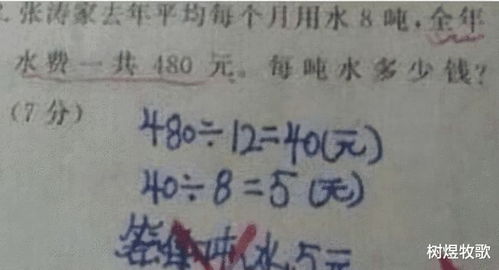 2. 张涛家去年平均每个月用水 8 吨，全年
水费一共 480 元。每吨水多少钱？
(7 分)
480÷12=40(元)
40÷8=5(元)
答：每吨水5元
树煜牧歌